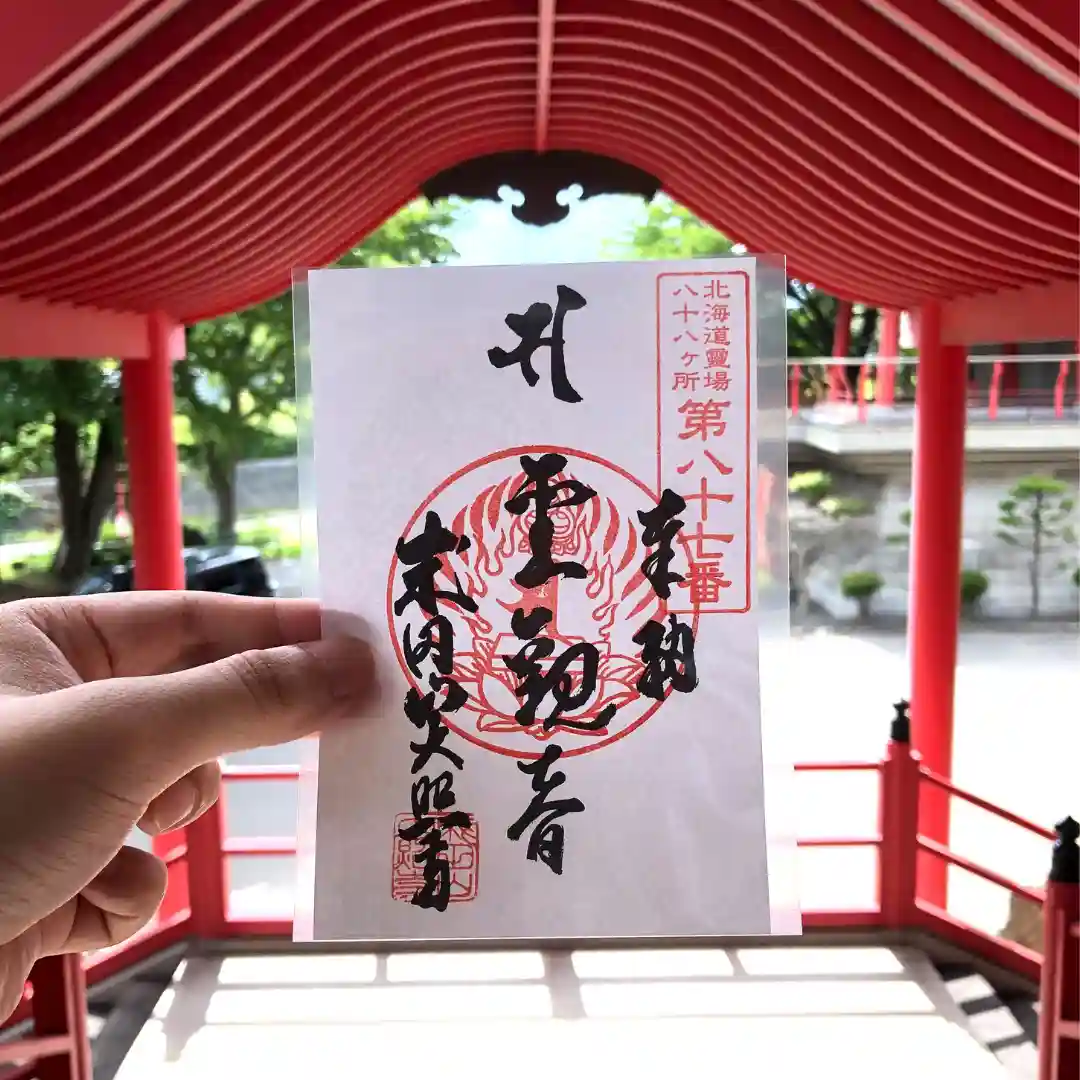 北海道霊場
八十八ヶ所
第八十七番
奉納
聖観音
成田山大照寺